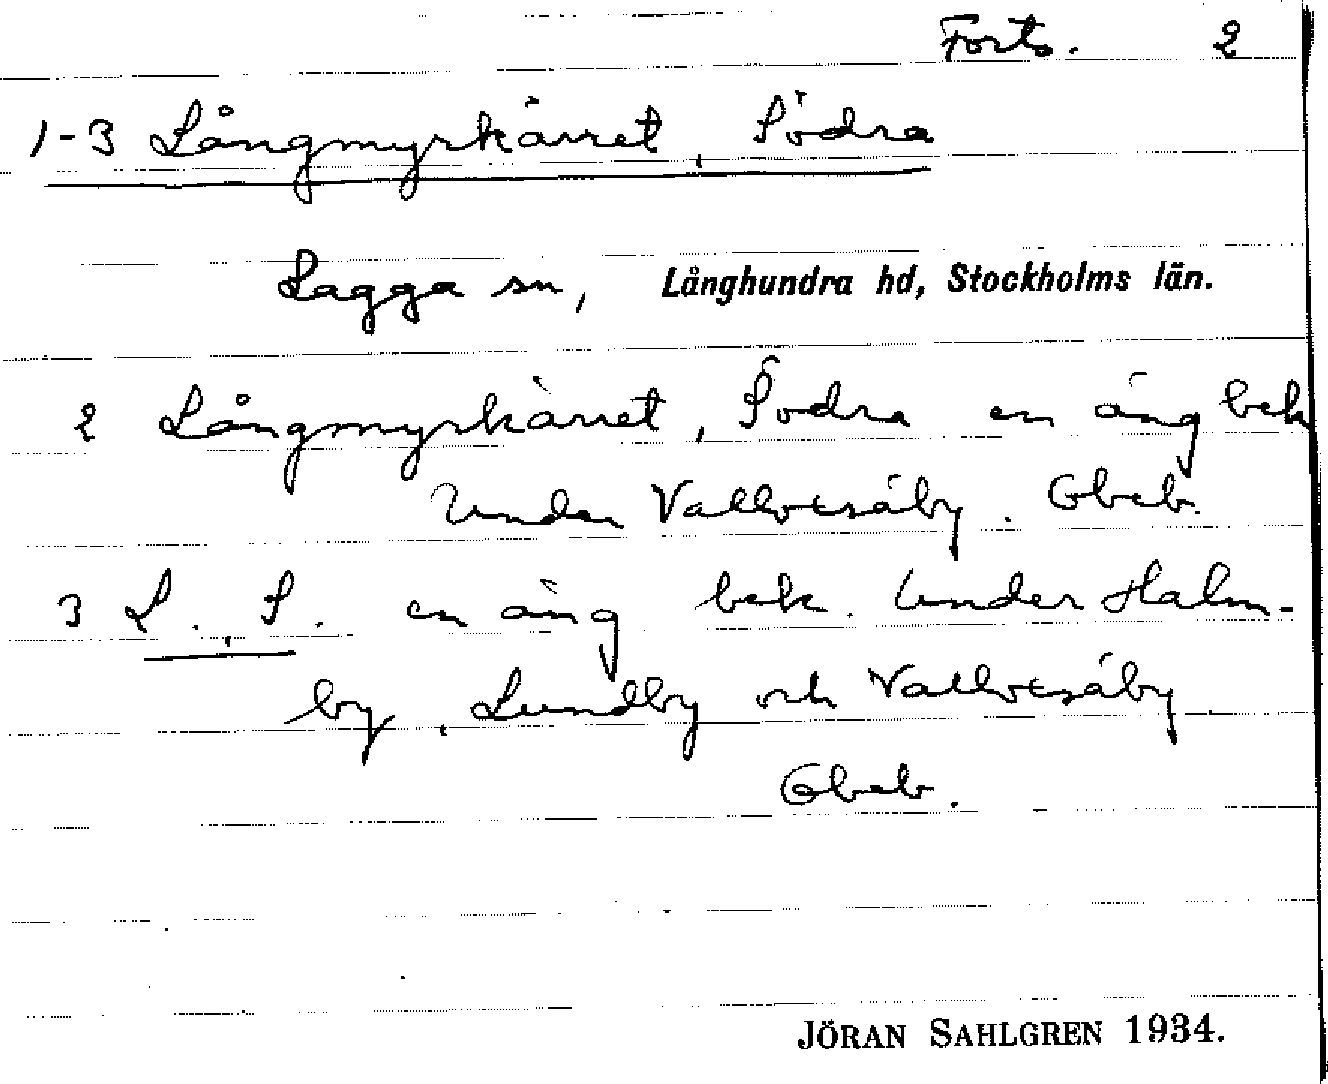 Forts. 2
1-3 Långmyrkärret, Södra
Lagga sn, Långhundra hd, Stockholms län.
2 Långmyrkärret, Södra en äng bek
under Valloxsäby. Gbeb.
3 L., S. en äng bek. under Halm-
by, Lundby och Valloxsäby
Gbeb.
JÖRAN SAHLGREN 1934.